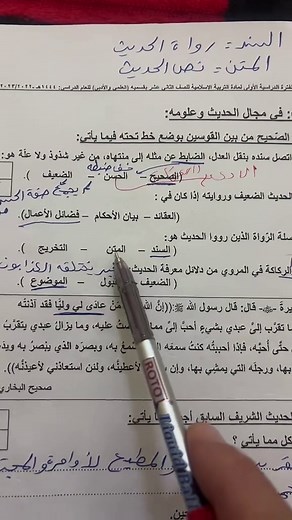 السند = رواة الحديث
المتن = نص الحديث
فترة الدراسية الأولى لمادة التربية الاسلامية للصف الثاني عشر بقسميه (العلمي والأدبي) للعام الدراسي: ١٤٤٤هـ - ٢٠٢٢/٢٠٢٣
في مجال الحديث وعلومه:
الصحيح من بين القوسين بوضع خط تحته فيما يأتي:
اتصل سنده بنقل العدل، الضابط عن مثله إلى منتهاه، من غير شذوذ ولا علة هو:
(الصحيح – الحسن – الضعيف ).
الحديث الضعيف وروايته إذا كان في :
(العقائد – بيان الأحكام – فضائل الأعمال).
سلسلة الرواة الذين رووا الحديث هو:
( السند – المتن – التخريج ).
الركاكة في المروي من دلائل معرفة الحديث
( الضعيف – الموضوع ).
قال: قال رسول الله ﷺ: مَنْ عادَى لي وليًّا فقد آذنته
إليَّ عبدي بشيءٍ أحبَّ إليَّ مما عليه، وما يزال عبدي يتقرَّب
حتَّى أُحبَّه، فإذا أحببتُه كنتُ سمعَه به، وبصرَه الذي يُبْصر به ويده
بها، ورجلَه التي يمشي بها، وإن لأعطينَّه، ولئن استعاذني لأعيذنَّه)).
صحيح البخاري
الحديث الشريف السابق
كل مما يأتي ؟
المطيع لأوامره